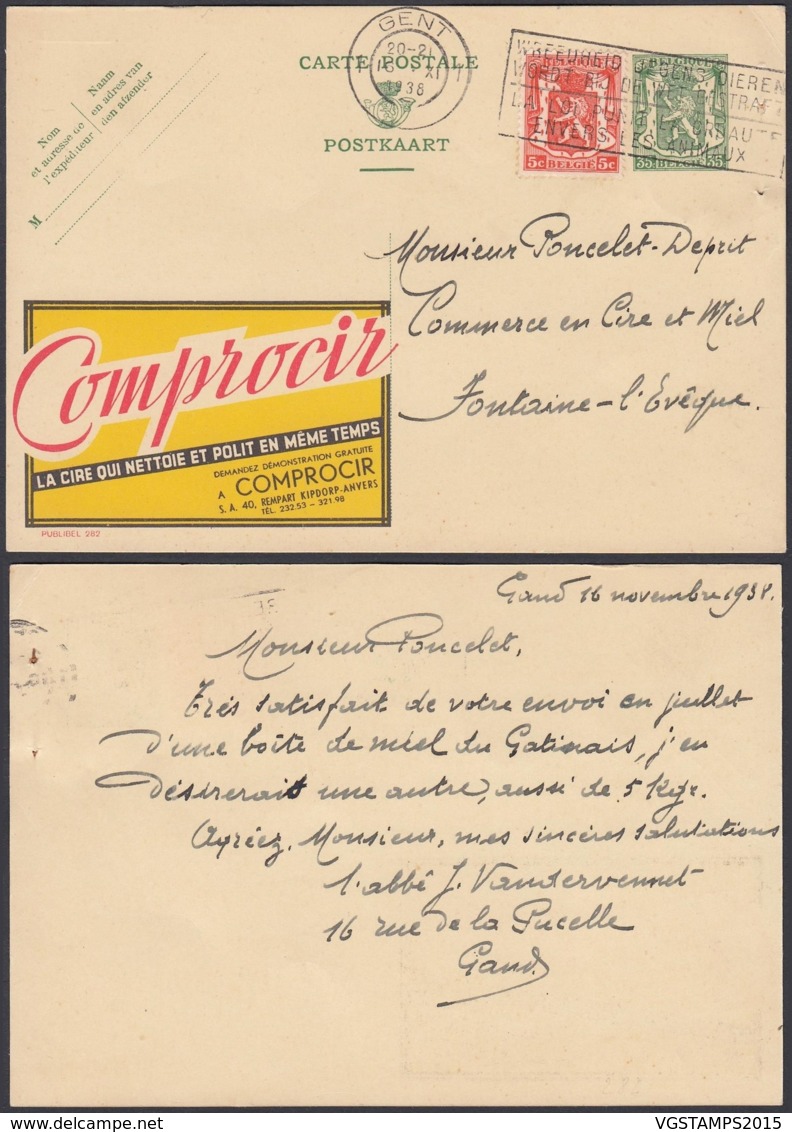 GENT
20-21
16 XI
1938
CARTE POSTALE
POSTKAART
Naam
en adres van
den afzender
Nom
et adresse de
l'expéditeur
M
WREEDHEID JEGENS DIEREN
WORDT BIJ DE WET GESTRAFT
LA LOI PUNIT LA CRUAUTE
ENVERS LES ANIMAUX
5c BELGIË 5c
BELGIQUE
35 BELGIË 35
Monsieur Poncelet-Deprit
Commerce en Cire et Miel
Fontaine-l'Evêque.
Comprocir
LA CIRE QUI NETTOIE ET POLIT EN MÊME TEMPS
DEMANDEZ DÉMONSTRATION GRATUITE
A COMPROCIR
S. A. 40, REMPART KIPDORP-ANVERS
TÉL. 232.53 - 321.98
PUBLIBEL 282
Gand 16 novembre 1938.
Monsieur Poncelet,
Très satisfait de votre envoi en juillet
d'une boîte de miel du Gatinais, j'en
désirerait une autre, aussi de 5 Kgr.
Agréez, Monsieur, mes sincères salutations
l'abbé J. Vandervennet
16 rue de la Pucelle
Gand
VGSTAMPS2015